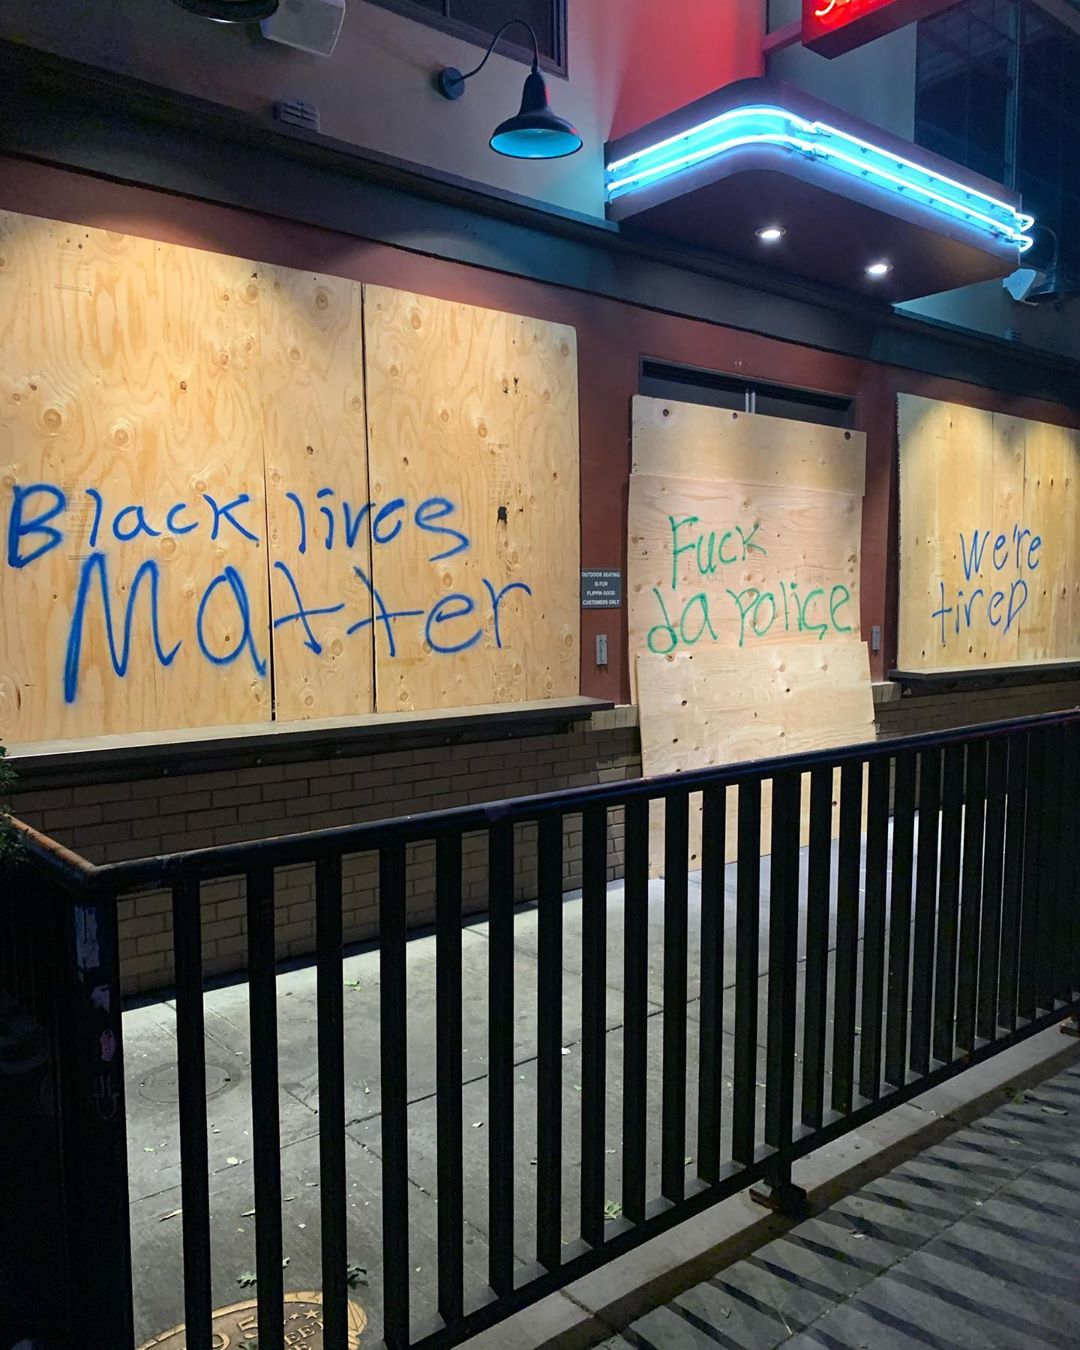 Black lives
Matter
OUTDOOR SEATING
IS FOR
FLIPPIN GOOD
CUSTOMERS ONLY
Fuck
da Police
We're
tireD